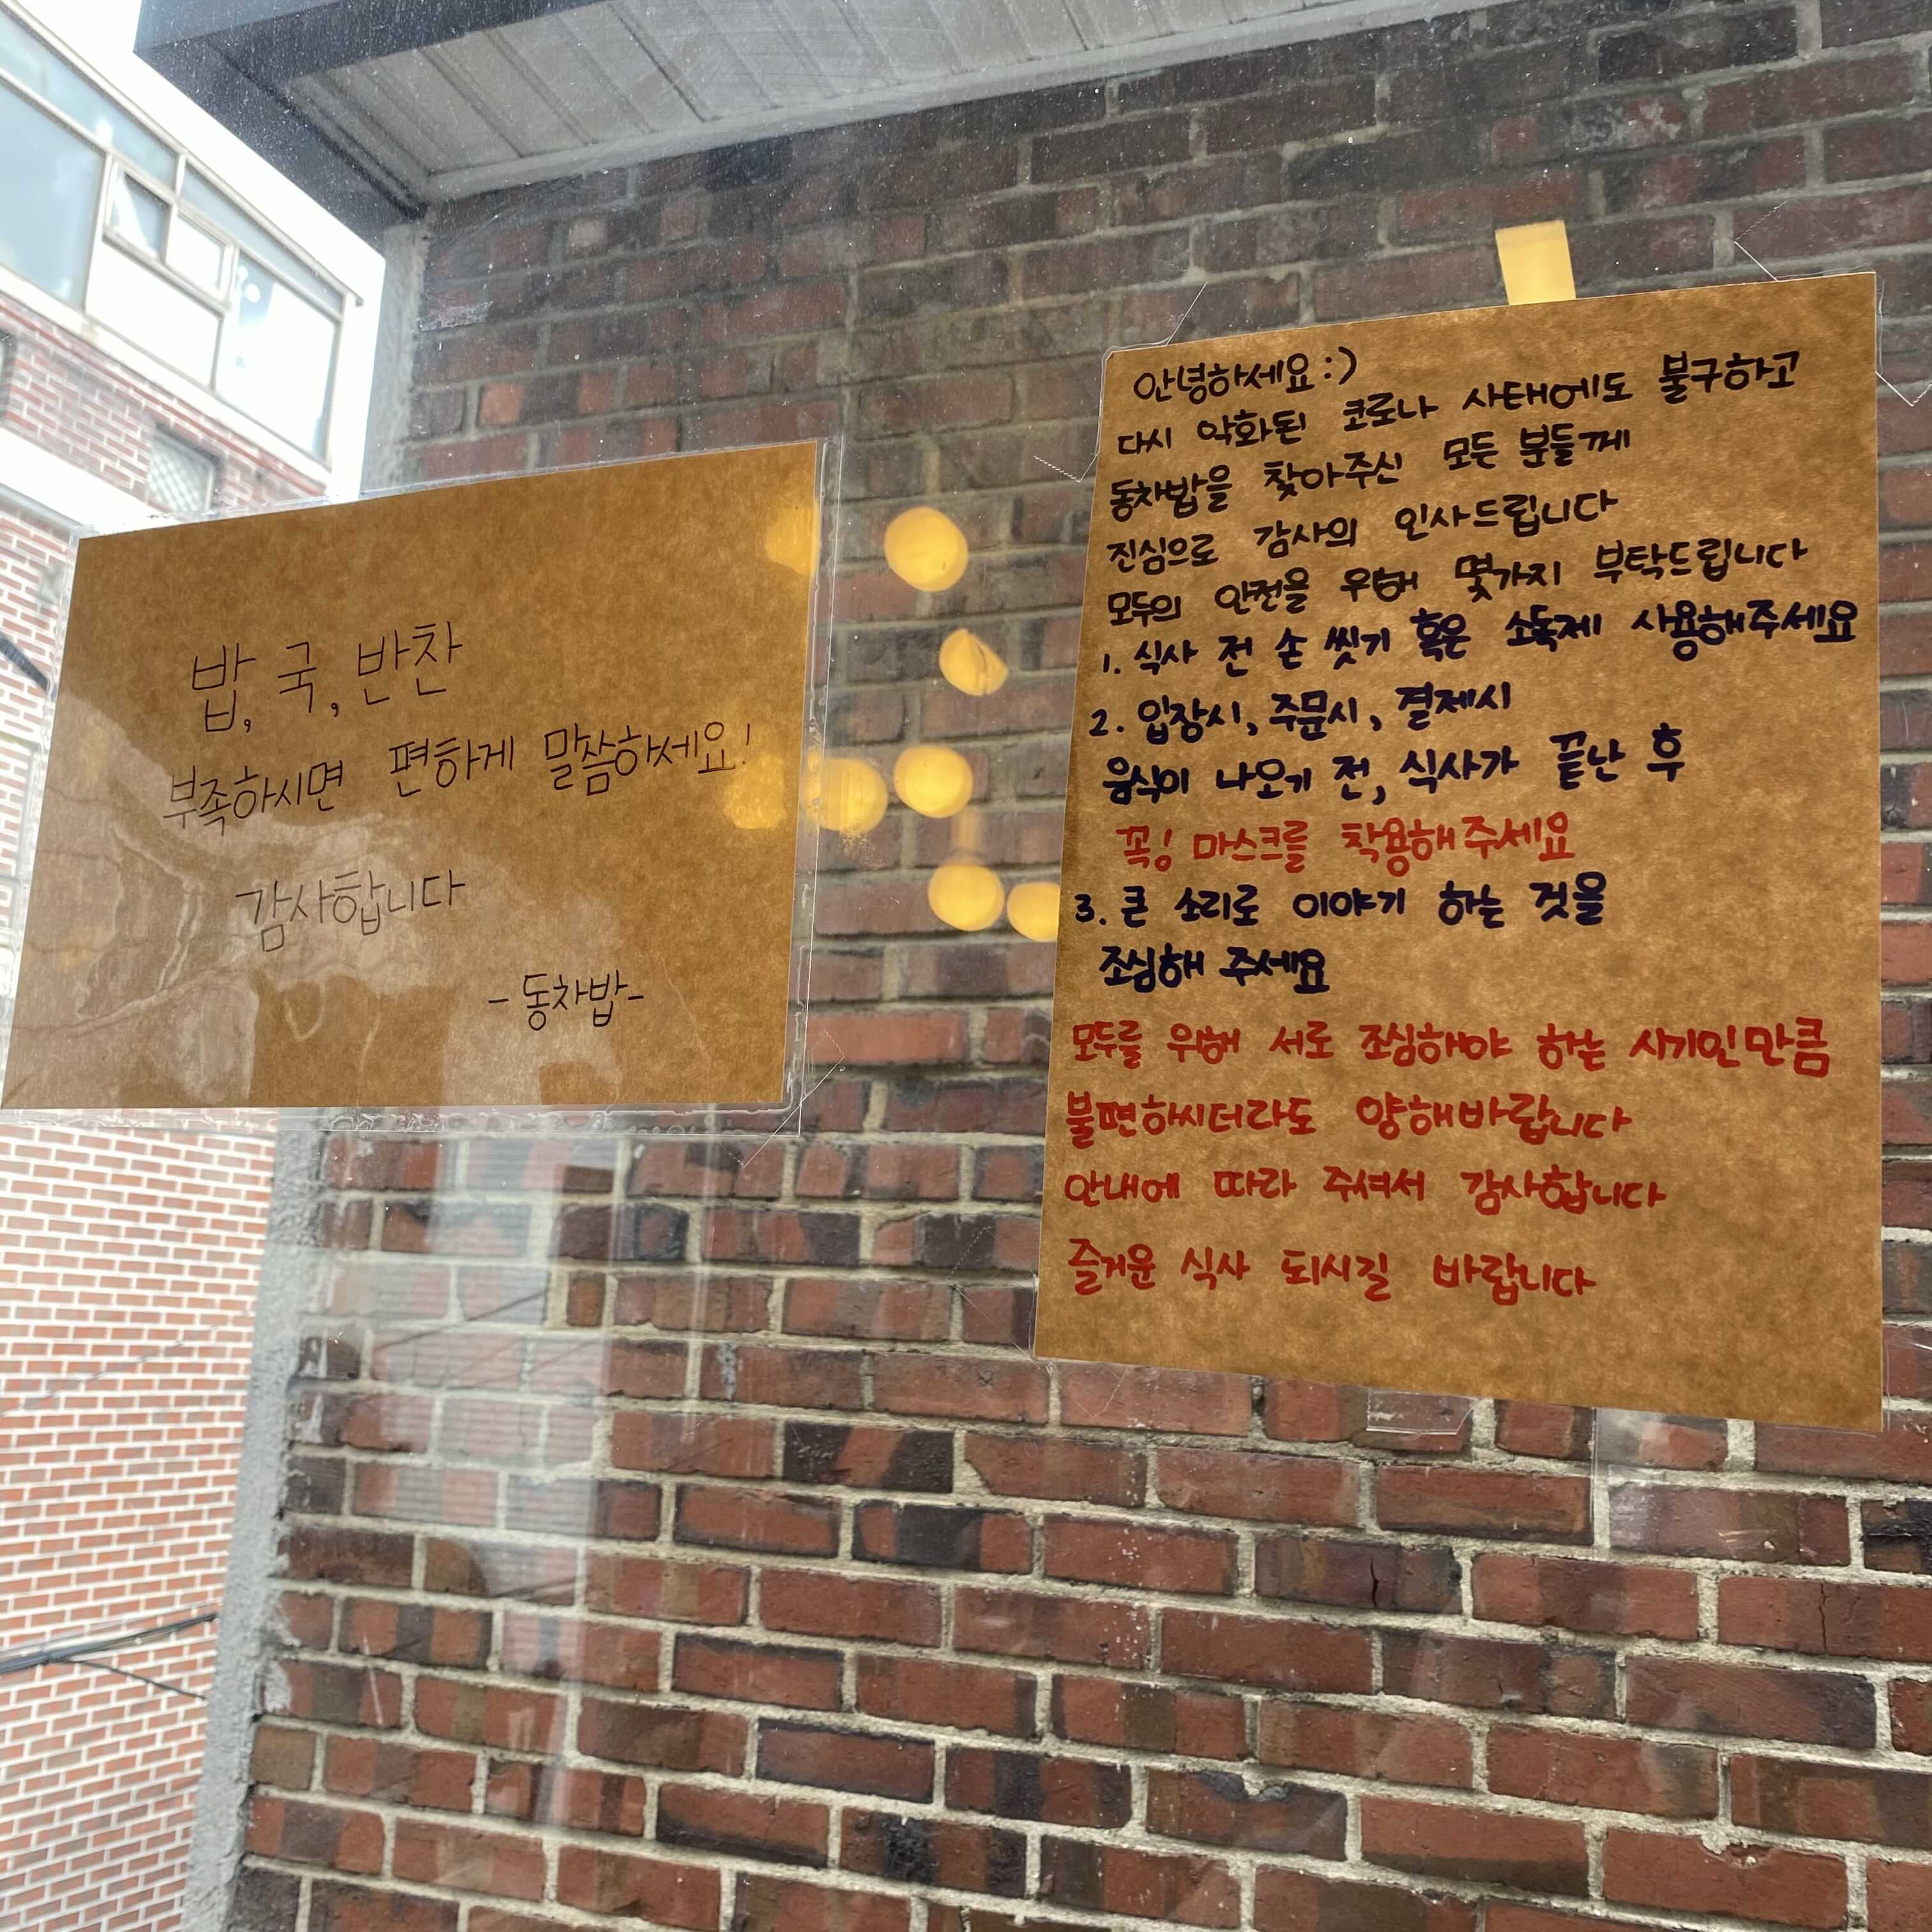 밥, 국, 반찬
부족하시면 편하게 말씀하세요!
감사합니다
-동차밥-
안녕하세요:)
다시 악화된 코로나 사태에도 불구하고
동차밥을 찾아주신 모든 분들께
진심으로 감사의 인사드립니다
모두의 안전을 위해 몇가지 부탁드립니다
1. 식사 전 손 씻기 혹은 소독제 사용해주세요
2. 입장시, 주문시, 결제시
음식이 나오기 전, 식사가 끝난 후
꼭! 마스크를 착용해주세요
3. 큰 소리로 이야기 하는 것을
조심해 주세요
모두를 위해 서로 조심해야 하는 시기인만큼
불편하시더라도 양해바랍니다
안내에 따라 주셔서 감사합니다
즐거운 식사 되시길 바랍니다